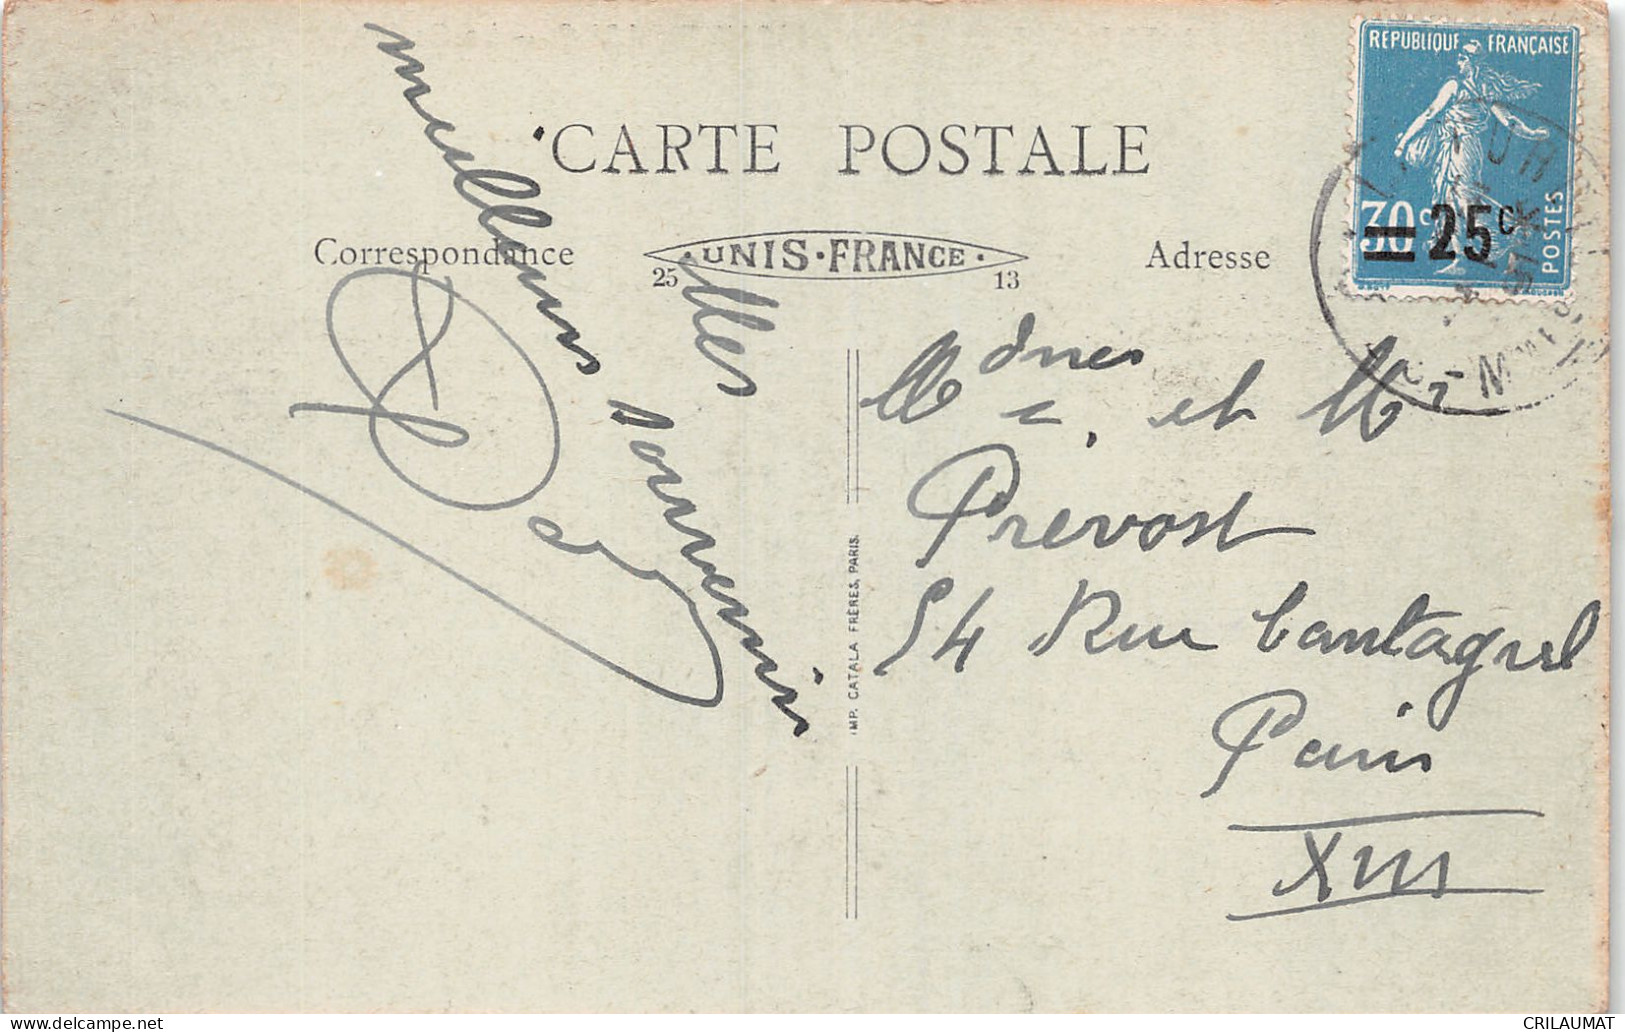 CARTE POSTALE
Correspondance
UNIS·FRANCE
25 13
Adresse
REPUBLIQUE FRANÇAISE
30c
25c
POSTES
meilleurs souvenirs
IMP. CATALA FRÈRES, PARIS.
et Mr
Prevost
54 Rue Cantagrel
Paris
XIII
CRILAUMAT